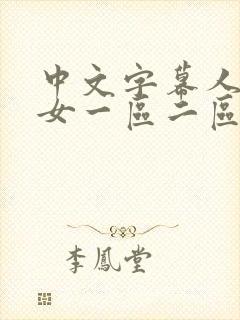 中文字幕人
女一區二區
李鳳堂